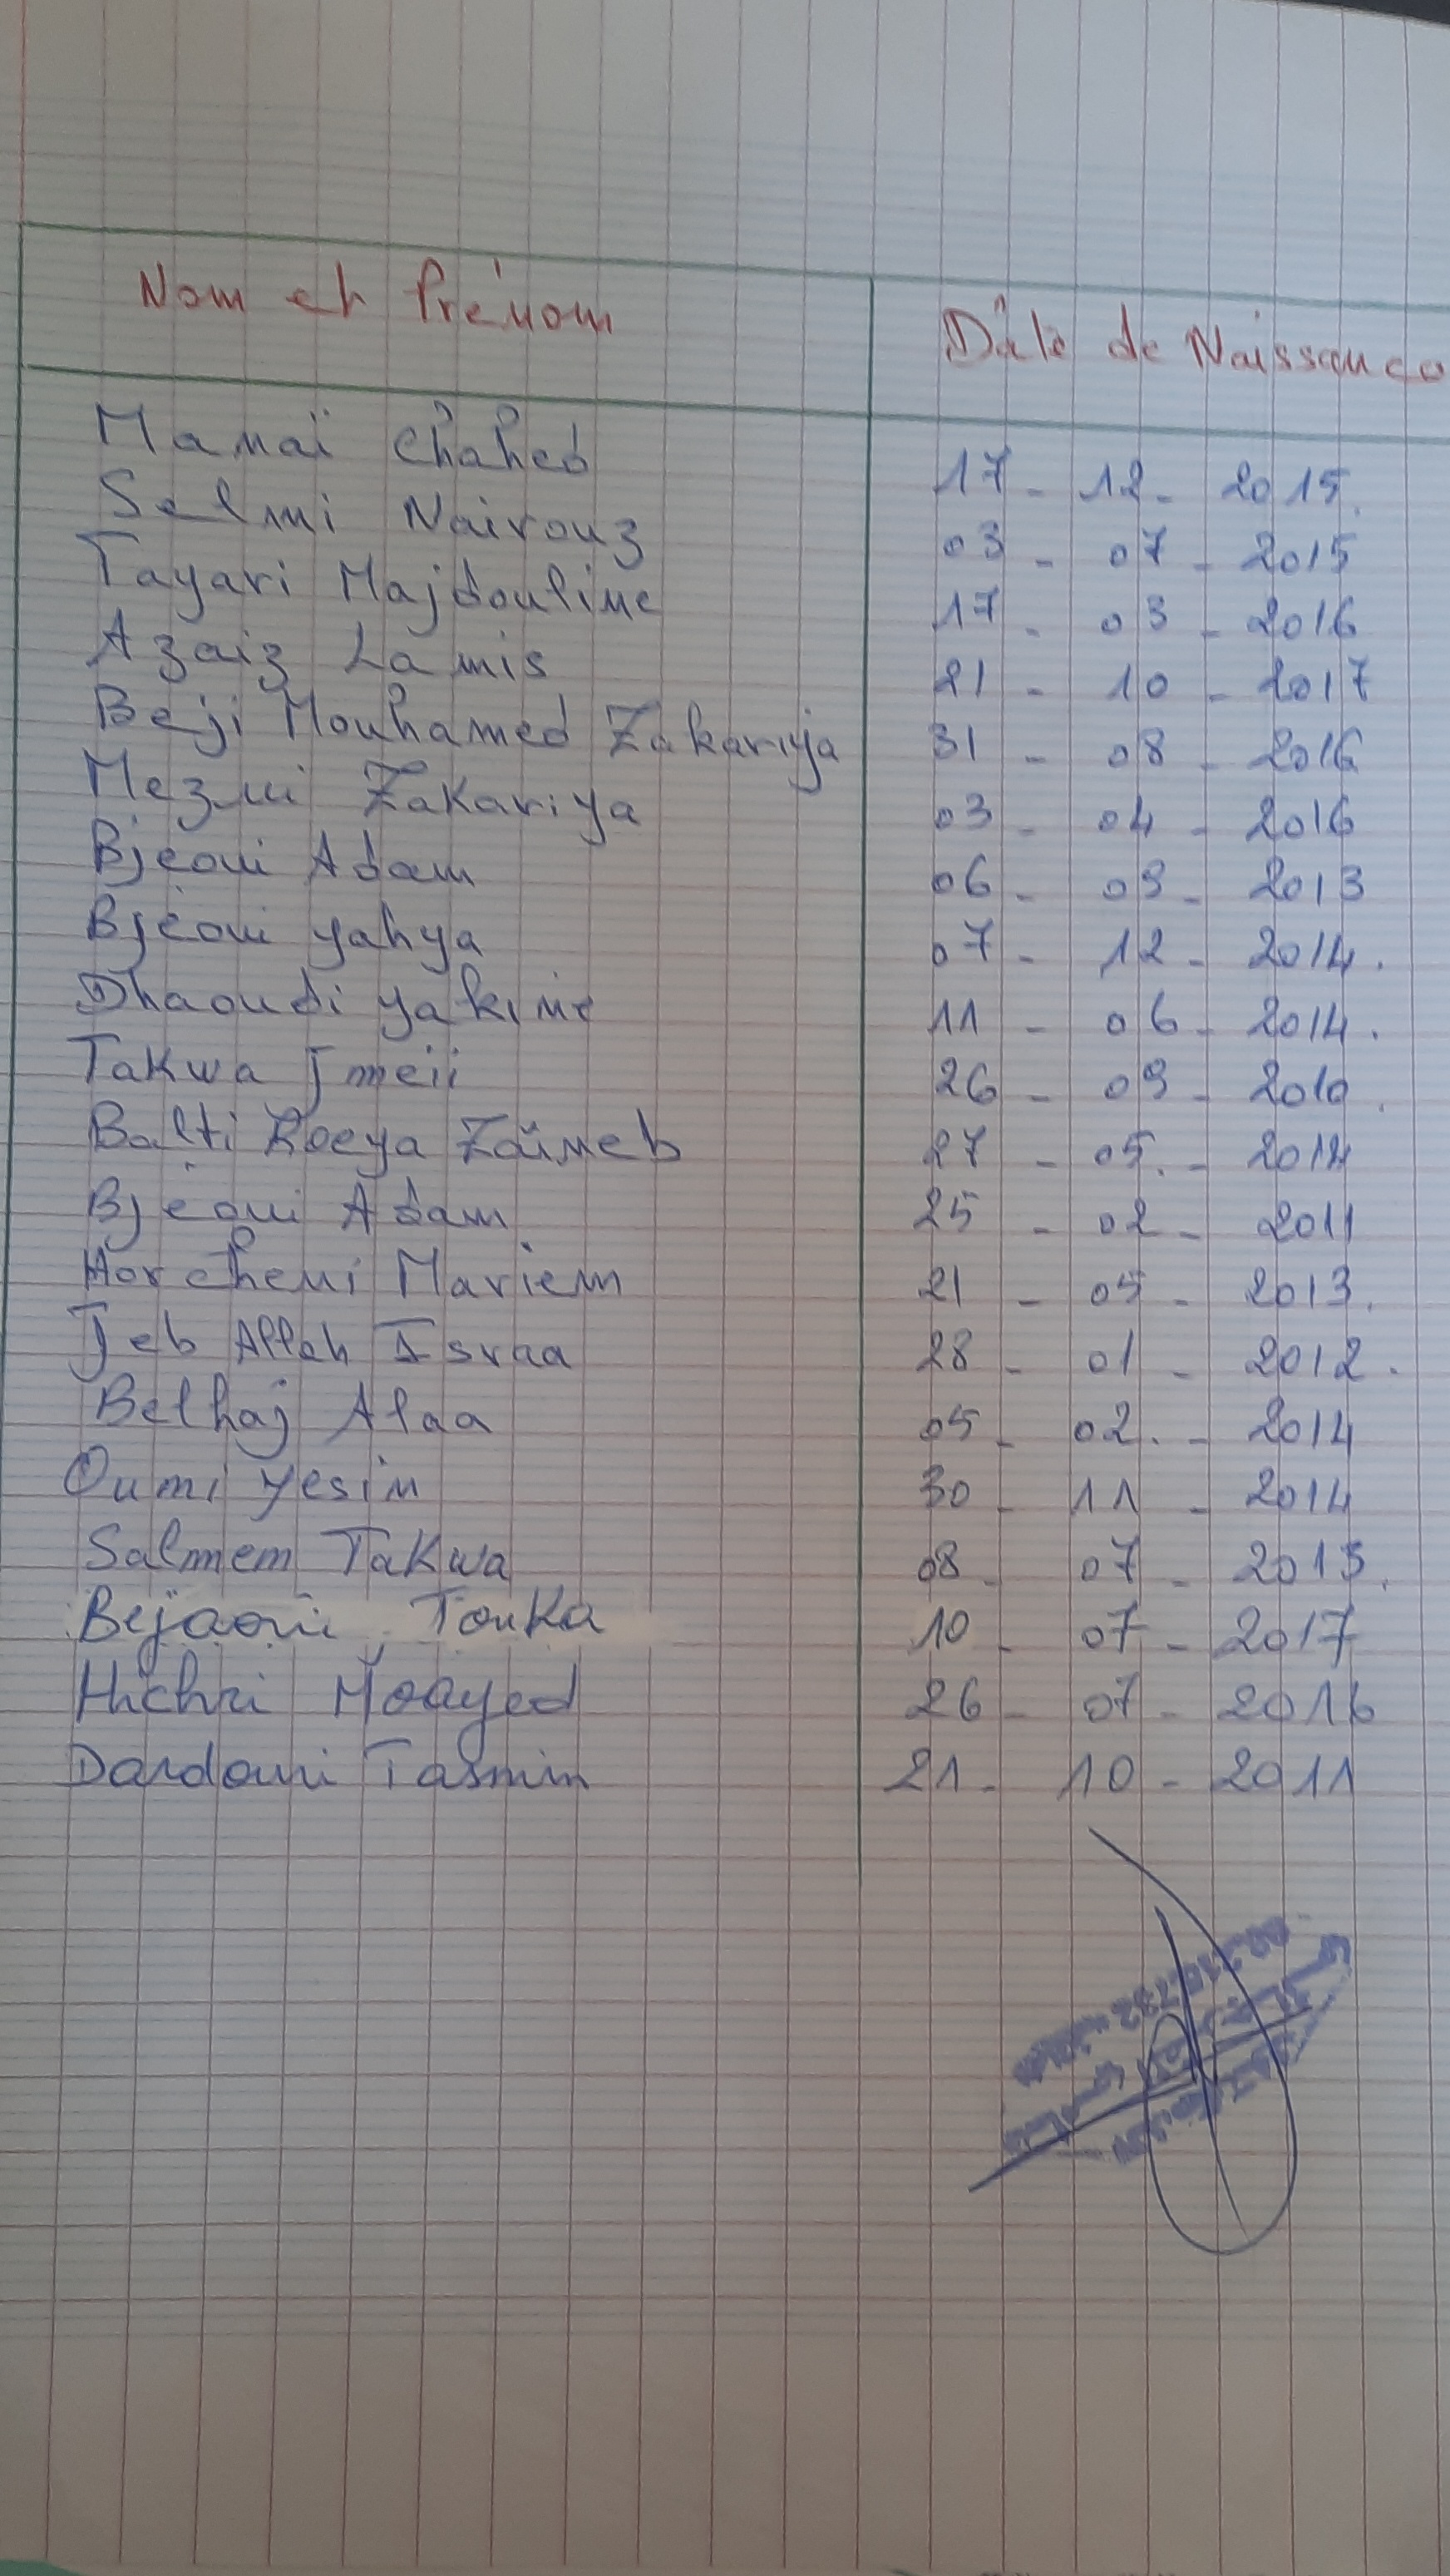 Nom et Prénom Dâte de Naissance
Mamaï Chahed 17 - 12 - 2015.
Selmi Nairouz 03 - 07 - 2015
Tayari Majdouline 17 - 03 - 2016
Azaiz Lamis 21 - 10 - 2017
Beji Mouhamed Zakariya 31 - 08 - 2016
Mezni Zakariya 03 - 04 - 2016
Bjeoui Adam 06 - 09 - 2013
Bjéoui yahya 07 - 12 - 2014.
Dhaoudi yakine 11 - 06 - 2014.
Takwa Jmeii 26 - 09 - 2010.
Balti Zoeya Zaineb 27 - 05. - 2014
Bjéoui Adam 25 - 02 - 2011
Horcheni Mariem 21 - 05 - 2013.
Jeb Allah Israa 28 - 01 - 2012.
Belhaj Alaa 05 - 02. - 2014
Oumi yesin 30 - 11 - 2014
Salmem Takwa 08 - 07 - 2013.
Bejaoui Touka 10 - 07 - 2017
Hichri Moayed 26 - 07 - 2016
Dardouri Tasmin 21 - 10 - 2011